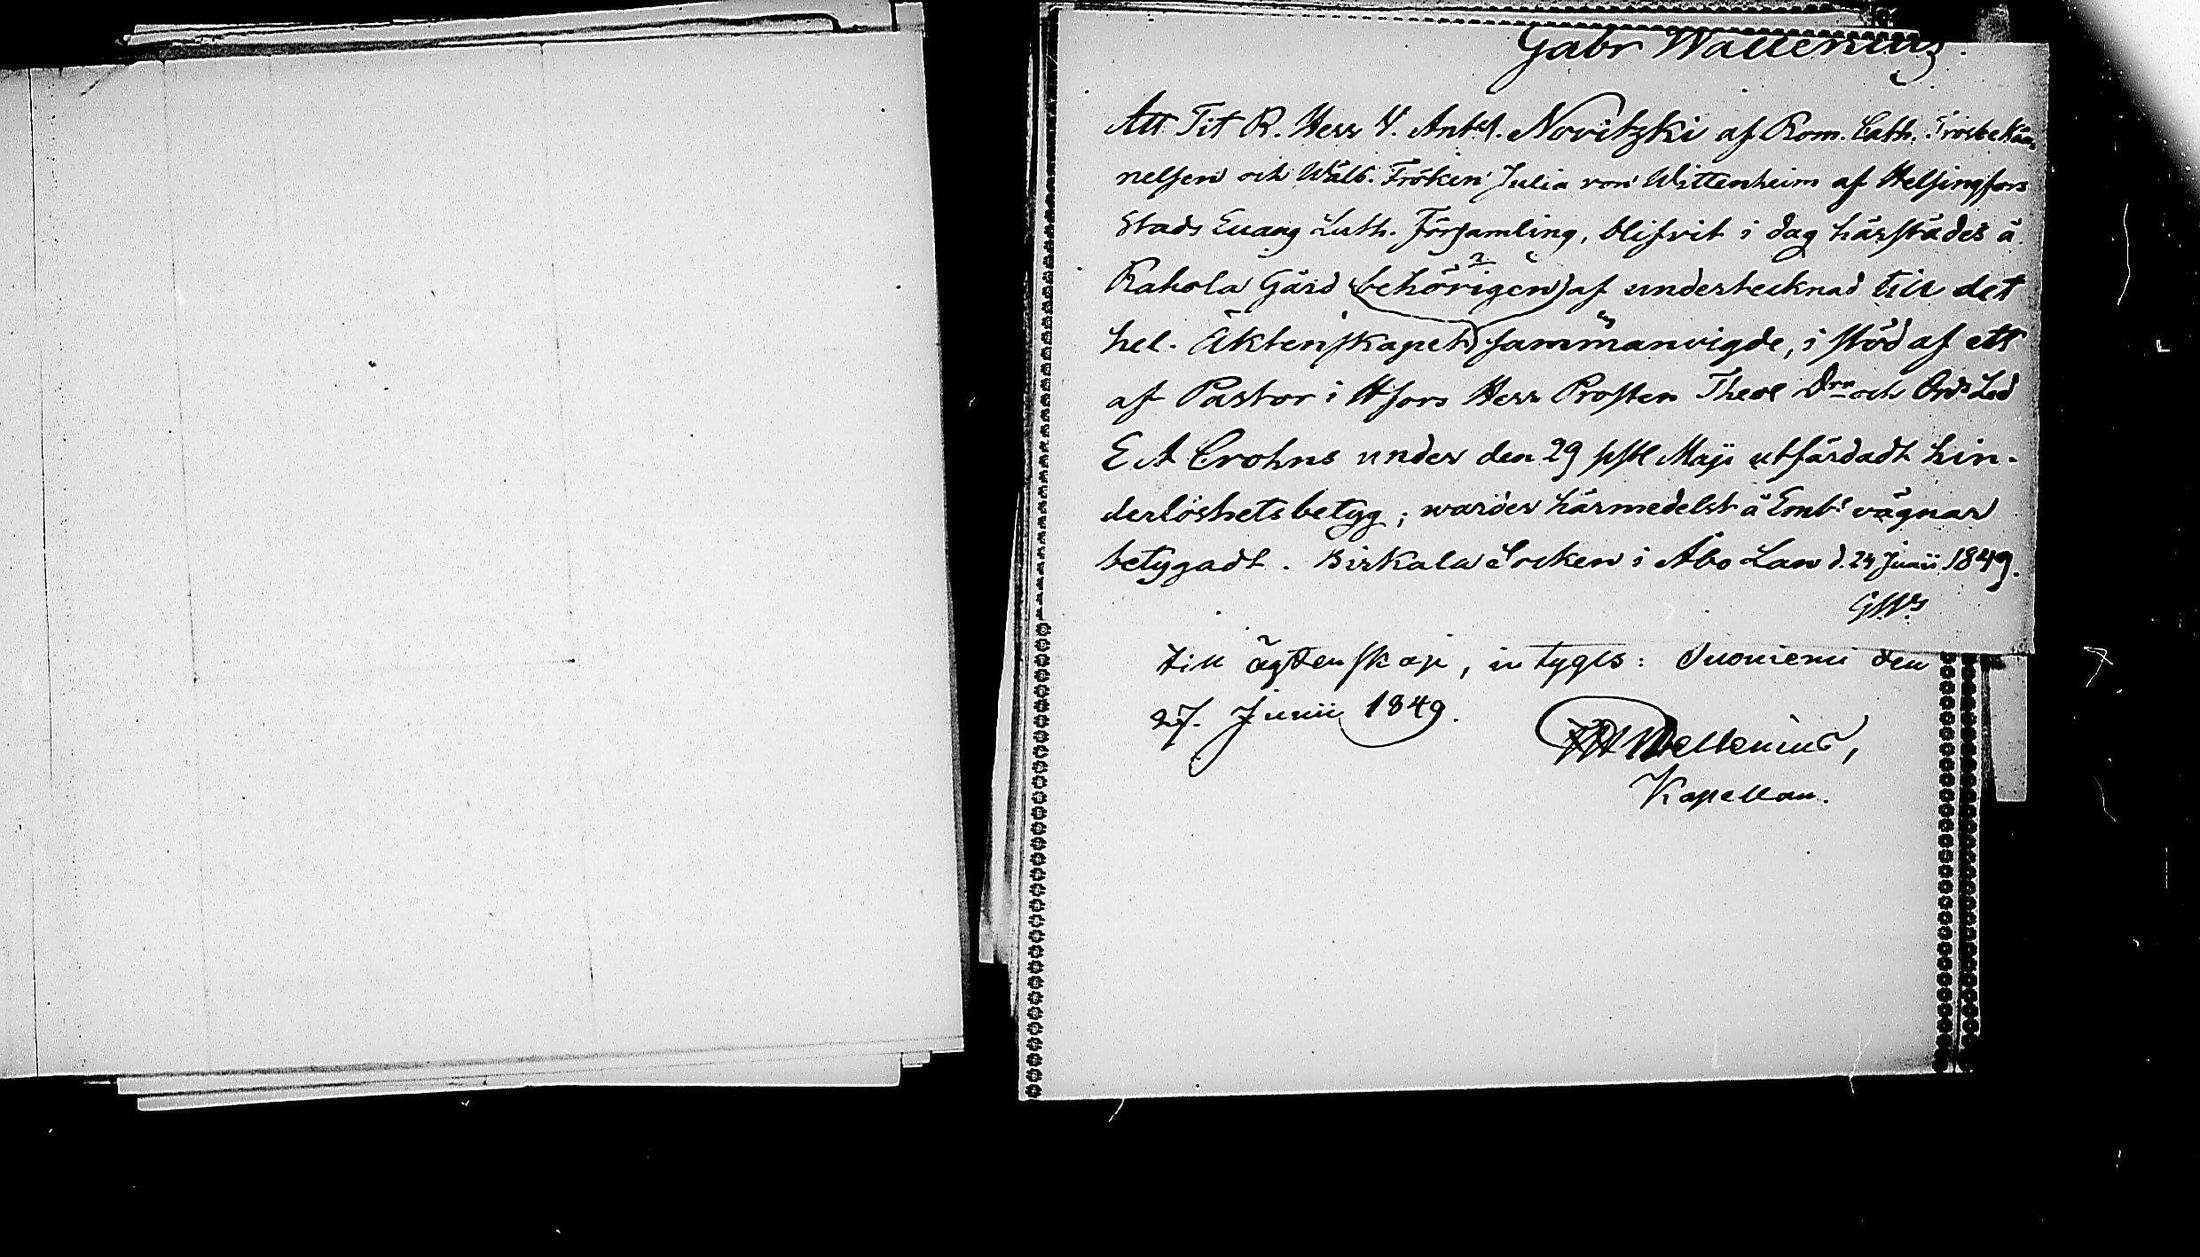 Gabr Wallenius.
Att Tit R. Herr V. Ant. Novitzki af Rom. Cath. Trosbekän
nelsen och Wälb. Fröken Julia von Wittenheim af Helsingfors
Stads Evang Luth. Församling, blifvit i dag härstädes å
Rahola Gård (behörigen) af undertecknad till det
hel. Äktenskapet sammanvigde, i stöd af ett
af Pastor i Hfors Herr Prosten Theol Drn och Ord Led
E A Crohns under den 29 sistl Maji utfärdadt hin-
derlöshetsbetyg; warder härmedelst å Emb vägnar
betygadt. Birkala Socken i Åbo Län d. 24 Junii 1849.
till ägtenskap, intygas: Suoniemi den
27. Junii 1849.
Wellenius,
Kapellan.